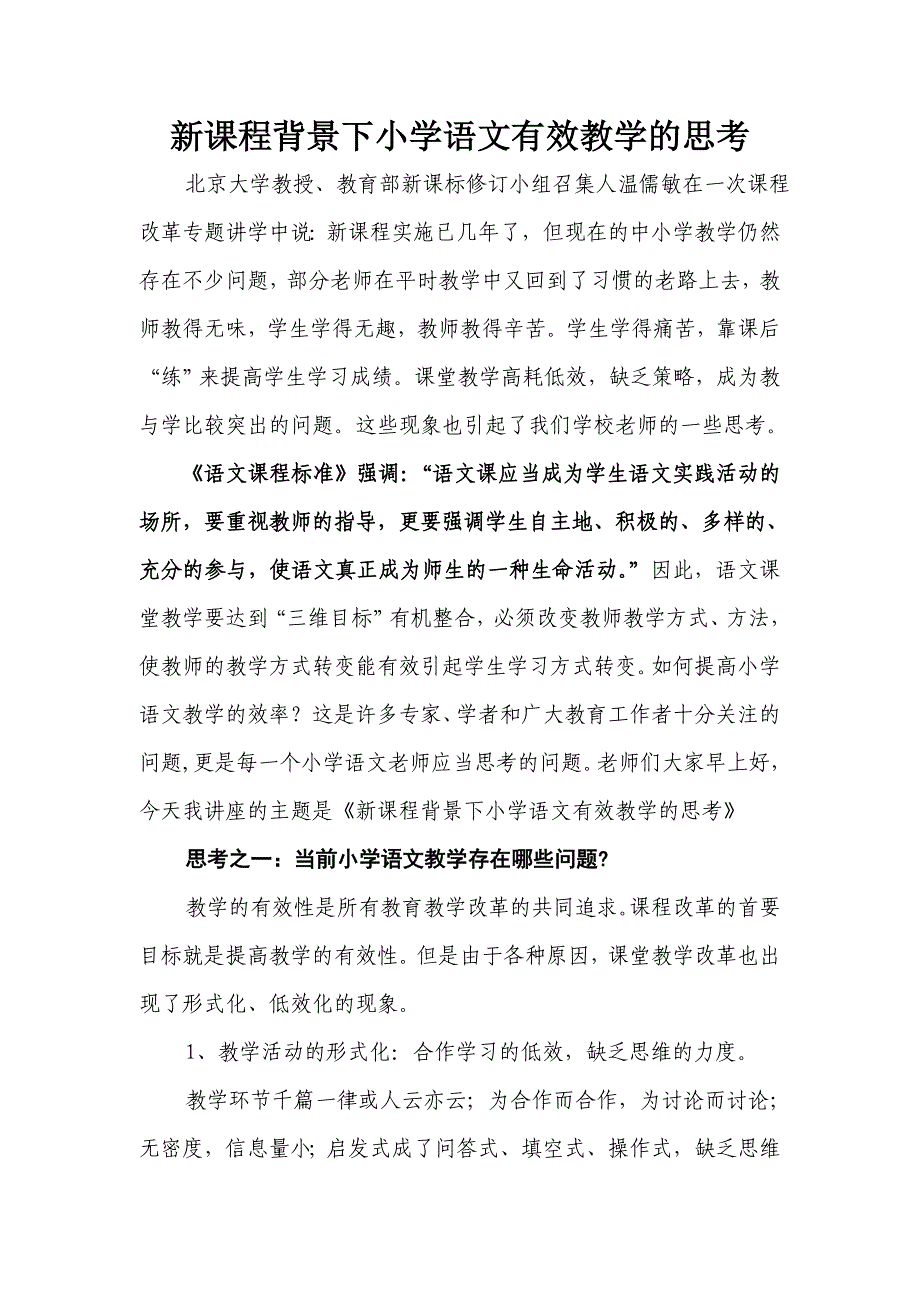 新课程背景下小学语文有效教学的思考
北京大学教授、教育部新课标修订小组召集人温儒敏在一次课程
改革专题讲学中说：新课程实施已几年了，但现在的中小学教学仍然
存在不少问题，部分老师在平时教学中又回到了习惯的老路上去，教
师教得无味，学生学得无趣，教师教得辛苦。学生学得痛苦，靠课后
“练”来提高学生学习成绩。课堂教学高耗低效，缺乏策略，成为教
与学比较突出的问题。这些现象也引起了我们学校老师的一些思考。
《语文课程标准》强调：“语文课应当成为学生语文实践活动的
场所，要重视教师的指导，更要强调学生自主地、积极的、多样的、
充分的参与，使语文真正成为师生的一种生命活动。”因此，语文课
堂教学要达到“三维目标”有机整合，必须改变教师教学方式、方法，
使教师的教学方式转变能有效引起学生学习方式转变。如何提高小学
语文教学的效率？这是许多专家、学者和广大教育工作者十分关注的
问题,更是每一个小学语文老师应当思考的问题。老师们大家早上好，
今天我讲座的主题是《新课程背景下小学语文有效教学的思考》
思考之一：当前小学语文教学存在哪些问题?
教学的有效性是所有教育教学改革的共同追求。课程改革的首要
目标就是提高教学的有效性。但是由于各种原因，课堂教学改革也出
现了形式化、低效化的现象。
1、教学活动的形式化：合作学习的低效，缺乏思维的力度。
教学环节千篇一律或人云亦云；为合作而合作，为讨论而讨论；
无密度，信息量小；启发式成了问答式、填空式、操作式，缺乏思维